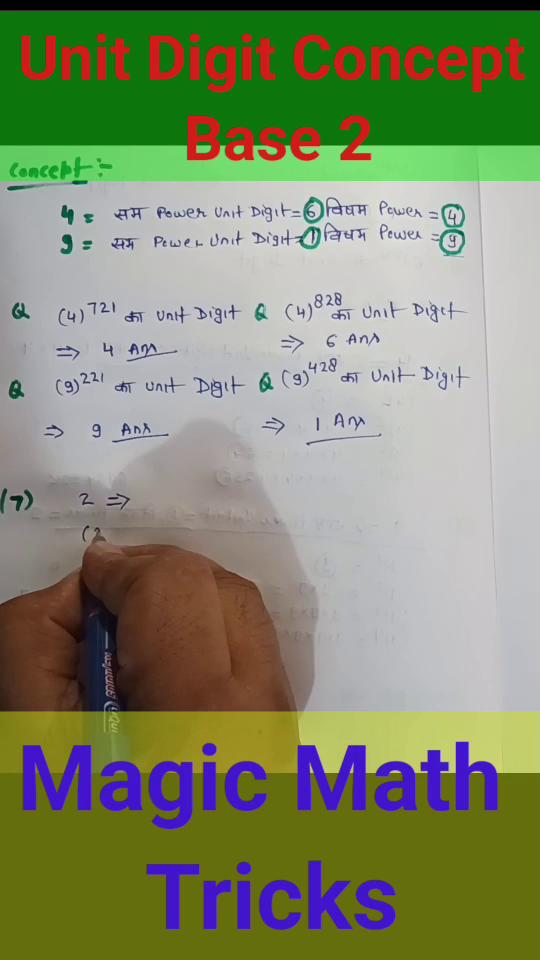 Unit Digit Concept
Base 2
Concept :-
4 = सम Power Unit Digit = 6 विषम Power = 4
9 = सम Power Unit Digit = 1 विषम Power = 9
Q (4)^721 का Unit Digit Q (4)^828 का Unit Digit
⇒ 4 Ans ⇒ 6 Ans
Q (9)^221 का Unit Digit Q (9)^428 का Unit Digit
⇒ 9 Ans ⇒ 1 Ans
(7) 2 ⇒
Magic Math
Tricks